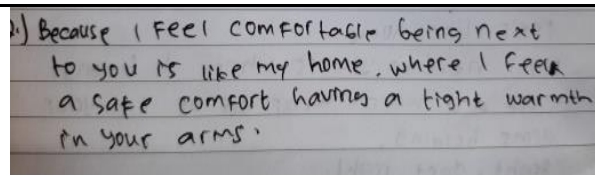 2.) Because I Feel comfortable being next
to you is like my home, where I feel
a safe comfort having a tight warmth
in your arms.